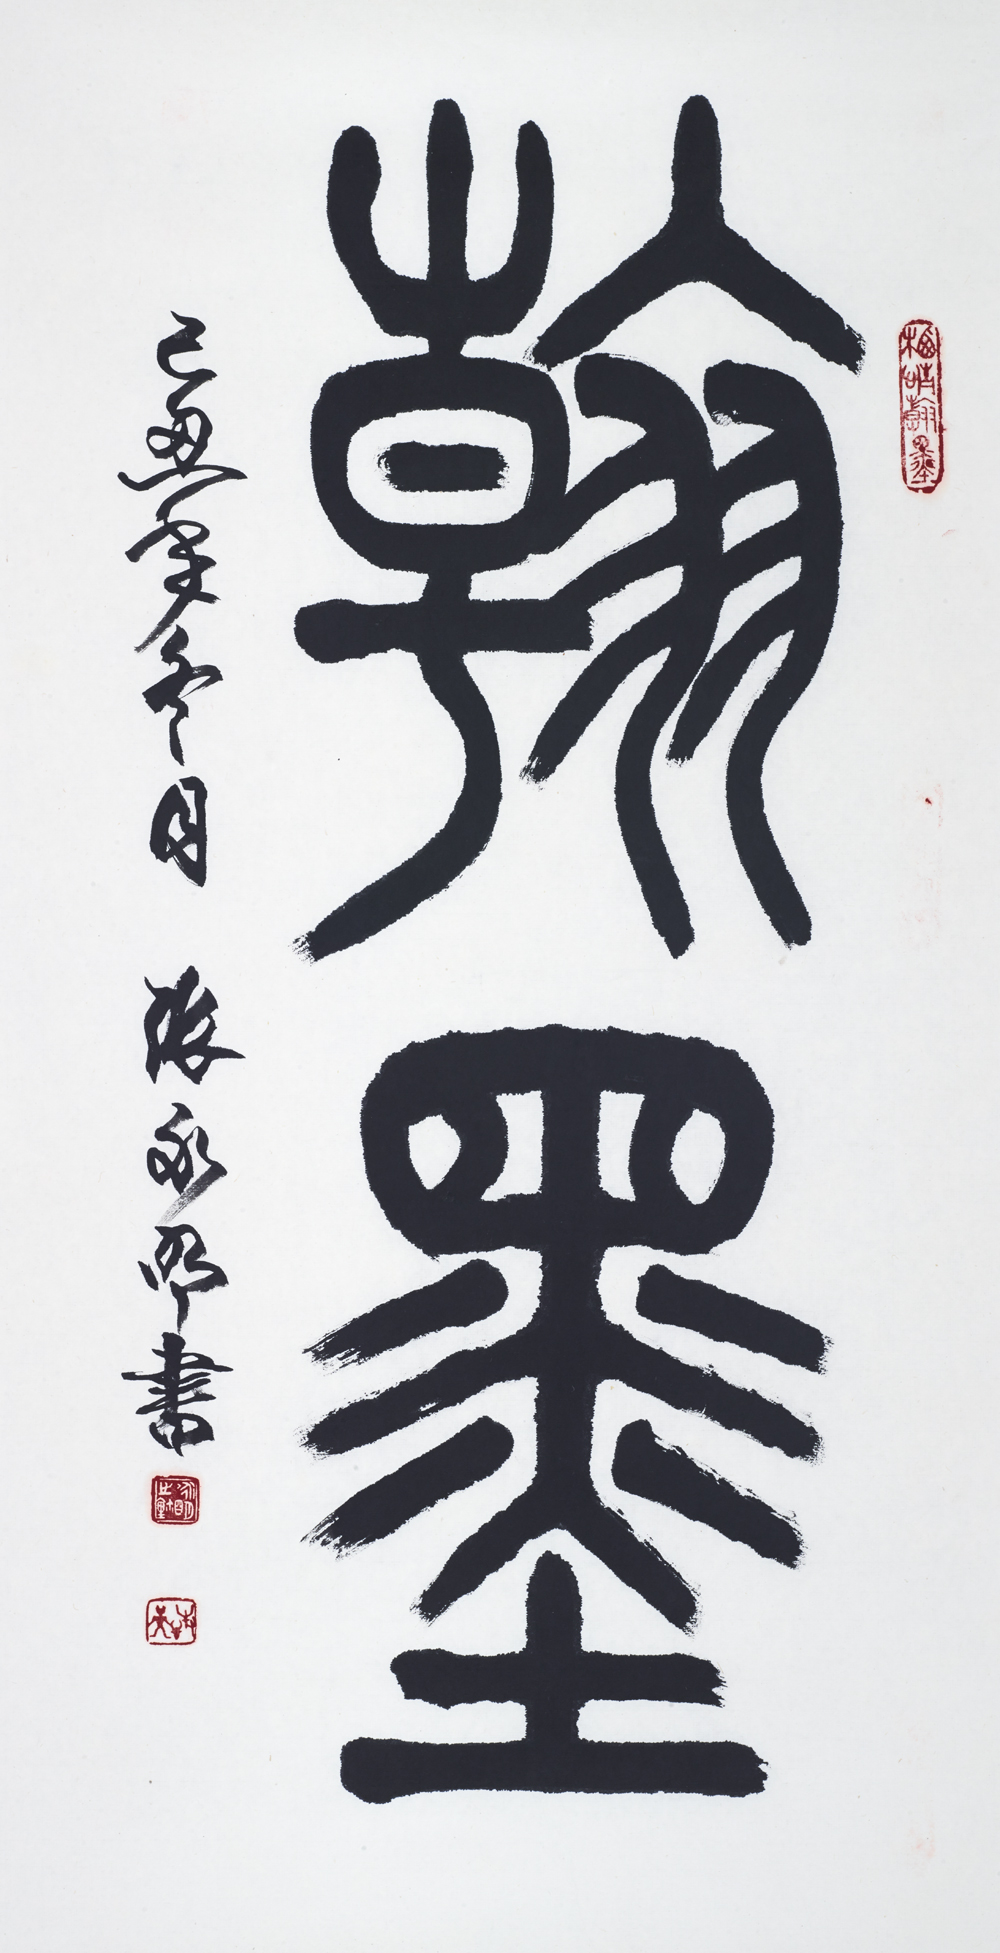 翰墨
己丑年冬月 張永明書
翰墨